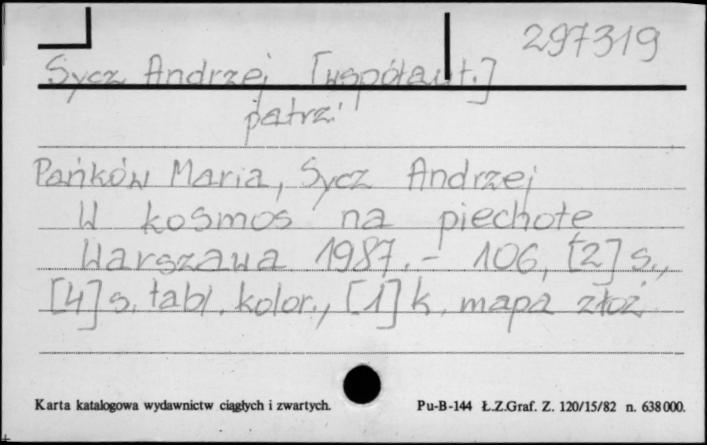 297319
Sycz Andrzej [współaut.]
patrz:
Pańków Maria, Sycz Andrzej
W kosmos na piechotę
Warszawa 1987.- 106, [2] s.,
[4] s. tabl. kolor., [1] k. mapa złoż.
Karta katalogowa wydawnictw ciągłych i zwartych. Pu-B-144 Ł.Z.Graf. Z. 120/15/82 n. 638000.